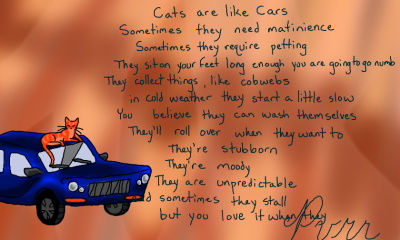 Cats are like Cars
Sometimes they need matinience
Sometimes they require petting
They sit on your feet long enough you are going to go numb
They collect things, like cobwebs
in cold weather they start a little slow
You believe they can wash themselves
They'll roll over when they want to
They're stubborn
They're moody
They are unpredictable
d sometimes they stall
but you love it when they
Purrr